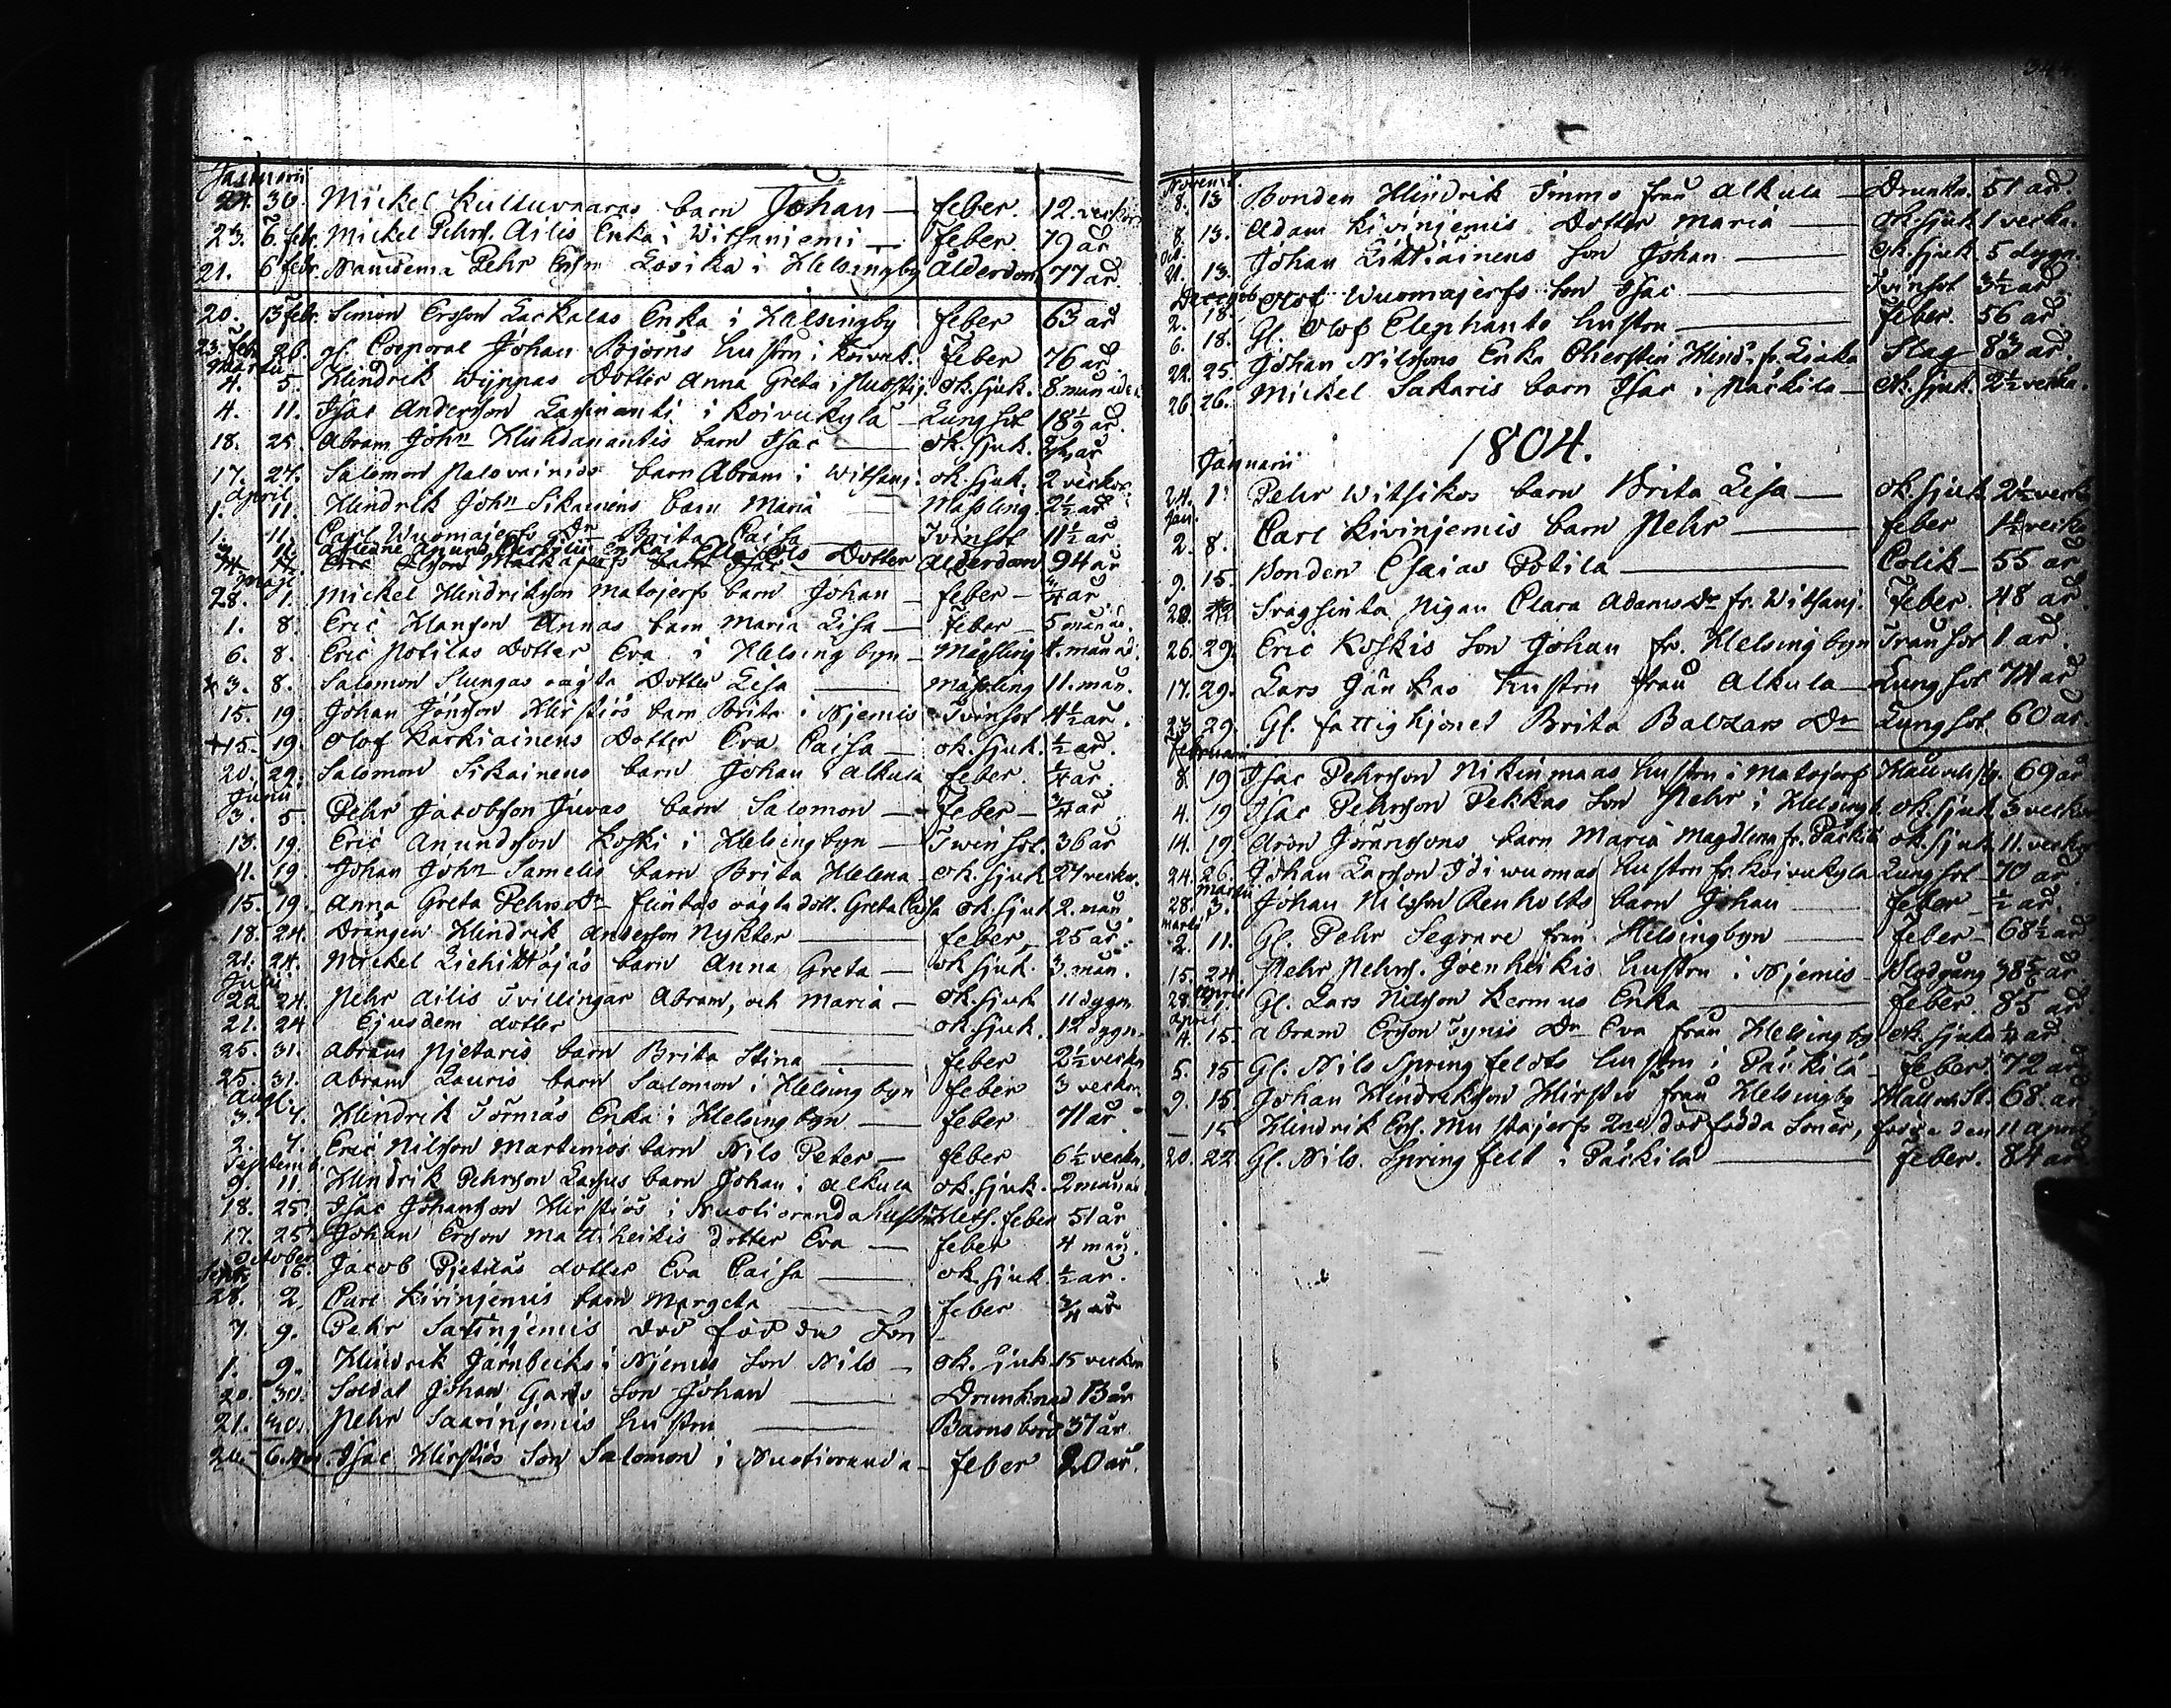 Januarii
24. 30. Mickel Kulluvaaras barn Johan — feber. 12. veckor
23. 6. febr. Mickel Pehrs. Ailis Enka i Witsaniemi — feber. 79 år
21. 6 febr. Nämdema Pehr Losika i Helsingby Ålderdom 77 år.
20. 13 febr. Simon Ersson Lackalas Enka i Helsingby feber 63 år
23. feb. 26. gl. Corporal Johan Björns hustru i Koivuk. feber 76 år.
Martii
4. 5. Hindrik Wynpas Dotter Anna Greta i ok. sjuk. 8 månader
4. 11. Isac Andersson Lassinanti i Koivukylä — Lungsot 18½ år.
18. 25. Abram Johns Huhdanantis barn Isac — ok. sjuk. ½ år
17. 27. Salomon Palovainios barn Abram i Witsanj. ok. sjuk. 2 veckor.
April
1. 11. Hindrik Johns Sikainens barn Maria — Mässling. 2½ år
1. 11. Carl Wuomajerfs Dr Brita Caisa — Tvinsot 11½ år.
11. afledne Enka Dotter Ålderdom 94 år
Maji
28. 1. Mickel Hindriksson Matojerfs barn Johan — feber — ¾ år
1. 8. Eric Hansson Annas barn Maria Lisa — feber — 5 månad.
6. 8. Eric Potilas Dotter Eva i Helsingbyn — Mässling 4. månad.
3. 8. Salomon Slungas oägta Dotter Lisa — Mässling 11. mån.
15. 19. Johan Jönsson Hirstiös barn Brita i Njemis Tvinsot 4½ år.
15. 19. Olof Karkiainens Dotter Eva Caisa — ok. sjuk. ½ år.
20. 29. Salomon Sikainens barn Johan i Alkula feber ¼ år.
Junii
3. 5. Pehr Jacobsson Juvas barn Salomon — feber — ¼ år.
13. 19. Eric Anundsson Koski i Helsingbyn — Twinsot. 36 år
11. 19. Johan Johns Samelis barn Brita Helena — ok. sjuk 27 veckor.
15. 19. Anna Greta Pehrs Dr flintas oägta dott. Greta Caisa ok. sjuk 2. mån.
18. 24. Drängen Hindrik Andersson Nykter — feber — 25 år.
21. 24. Mickel barn Anna Greta — ok sjuk. 3. mån.
Julii
22. 24. Pehr Ailis Tvillingar Abram, och Maria — ok. sjuk 11 dygn
21. 24 Ejusdem dotter — ok. sjuk. 12 dygn.
25. 31. Abram Pjetaris barn Brita Stina — feber 2½ veckor
25. 31. Abram Lauris barn Salomon i Helsingbyn feber 3 veckor.
Aug.
3. 7. Hindrik Törmäs Enka i Helsingbyn — feber 71 år.
2. 7. Eric Nilsson Martimos barn Nils Peter — feber 6½ veckor.
Septemb.
9. 11. Hindrik Pehrsson Lassus barn Johan i Alkula ok. sjuk. 2 månad
18. 25. Isac Johansson Hirstiös i Nuotioranda hustru Hets. feber 51 år
17. 25. Johan Ersson Mattiheikis dotter Eva — feber 4 mån.
October
16. Jacob Pjetiläs dotter Eva Caisa — ok. sjuk. ½ år.
28. 2. Carl Kivinjemis barn Margeta — feber ¾ år
7. 9. Pehr Sarinjemis dödfödda Son
1. 9. Hindrik Järnbecks i Njemis Son Nils — ok. sjuk 15 veckor
20. 30. Soldat Johan Gards Son Johan — Drunknad 13 år
21. 30. Pehr Saarinjemis hustru — Barnsbörd 37 år
24. 6. nov. Isac Hirstiös Son Salomon i Nuotioranda — feber 20 år.
Novemb.
8. 13 Bonden Hindrik Immo från Alkula — Drunkn. 51 år.
8. 13. Adam Kivinjemis Dotter Maria — ok. sjuk 1 vecka.
Oct.
21. 13. Johan Littiäinens Son Johan — ok. sjuk. 5 dygn.
Decemb.
2. 18. Olof Wuomajerfs Son Isac — Tvinsot 3½ år.
6. 18. Gl. Olof Elephants hustru — feber. 56 år
22. 25 Johan Nilssons Enka Cherstin Hind. fr. Slag 83 år.
26. 26. Mickel Sakaris barn Isac i Päckilä — ok. sjuk. 2½ vecka.
1804.
Januarii
24. 1. Pehr Witsikos barn Brita Lisa — ok. sjuk 2½ veckor
Jan.
2. 8. Carl Kivinjemis barn Pehr — feber 4½ veckor
9. 15. Bonden Esaias Potila — Colik — 55 år
20. 22 Pigan Clara Adams Dr fr. Witsanj. feber. 48 år.
26. 29. Eric Koskis Son Johan fr. Helsingbyn Trånsot 1 år.
17. 29. Lars Jänkas hustru från Alkula — Lungsot 74 år
23. 29. Gl. fattighjonet Brita Baltzars Dr Lungsot. 60 år.
Februari
8. 19 Isac Pehrsson Nikinmaas hustru i Matojerf Håll och sty. 69 år
4. 19 Isac Pehrsson Pekkas Son Pehr i Helsingb. ok. sjuk 3 veckor
14. 19 Aron Jöranssons barn Maria Magdlena fr. Päckilä ok. sjuk 11. veckor
24. 26. Johan Larsson Idiwuomas hustru fr. Koivukylä Lungsot — 70 år.
Martii
28. 3. Johan Nilsson Renholts barn Johan — feber — ½ år.
Martii
2. 11. Gl. Pehr Segrare från Helsingbyn — feber — 68½ år
15. 24. Pehr Pehrs. Joenheikis hustru i Njemis Blodgång 38 år
April
28. Gl. Lars Nilsson Kermus Enka — feber. 85 år
April.
4. 15. Abram Ersson Tynis Dr Eva från Helsingby ok. sjuk ¼ år.
5. 15 Gl. Nils Springfeldts hustru i Päckilä — feber. 72 år
9. 15. Johan Hindriksson Hirstio från Helsingby Håll och St. 68. år
— 15 Hindrik Ers. Mustajerfs 2ne dödfödda Söner, födde den 11 April
20. 22. Gl. Nils. Springfelt i Päckilä — feber. 84 år